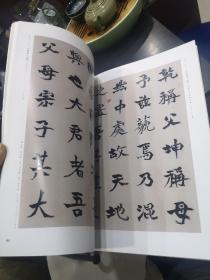 乾稱父坤稱母
予茲藐焉乃混
然中處故天地
與也大君者吾
父母宗子其大